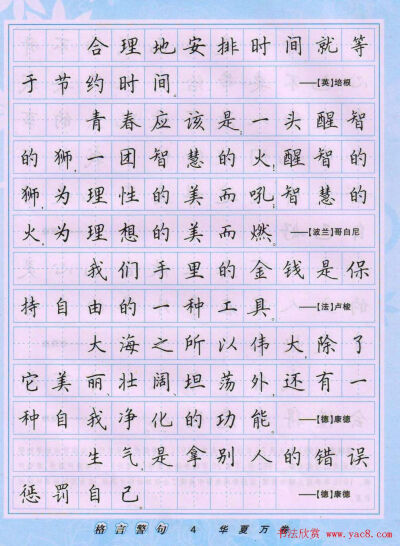 合理地安排时间就等
于节约时间。 ——【英】培根
青春应该是一头醒智
的狮,一团智慧的火!醒智的
狮,为理性的美而吼;智慧的
火,为理想的美而燃。 ——【波兰】哥白尼
我们手里的金钱是保
持自由的一种工具。 ——【法】卢梭
大海之所以伟大,除了
它美丽、壮阔、坦荡外,还有一
种自我净化的功能。 ——【德】康德
生气,是拿别人的错误
惩罚自己。 ——【德】康德
格言警句 4 华夏万卷
书法欣赏 www.yac8.com